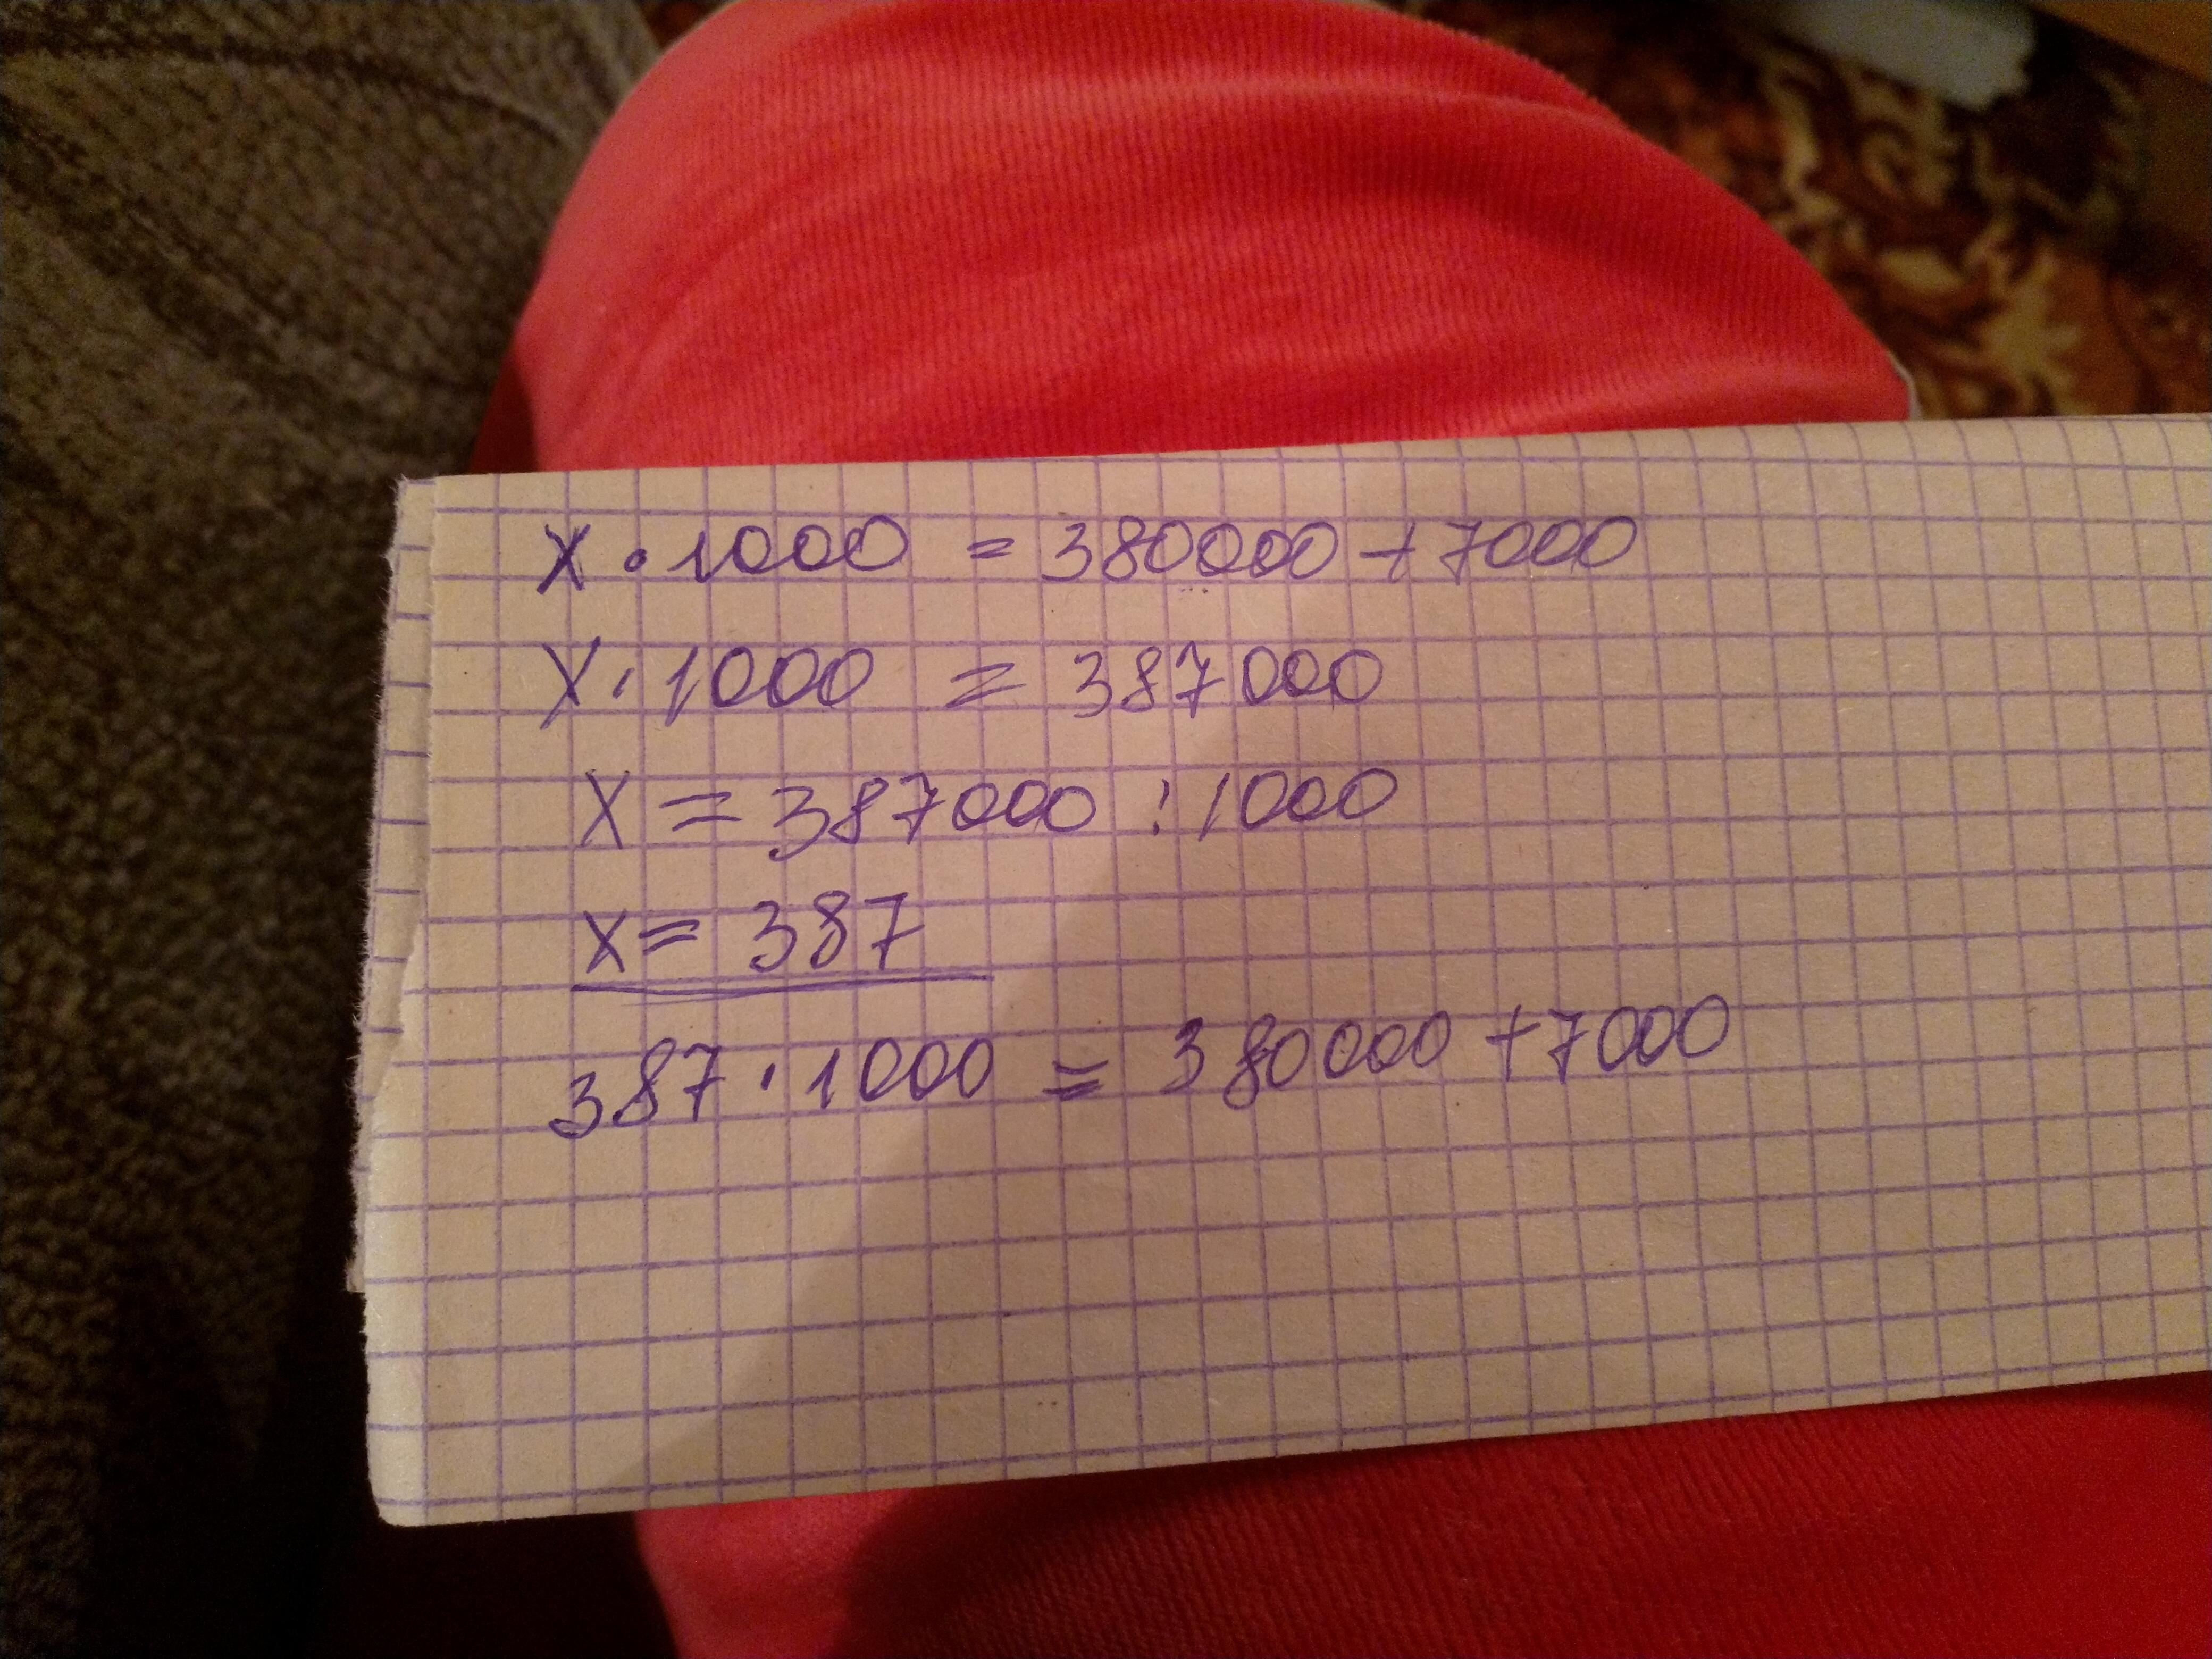 x · 1000 = 380000 + 7000
x · 1000 = 387000
x = 387000 : 1000
x = 387
387 · 1000 = 380000 + 7000